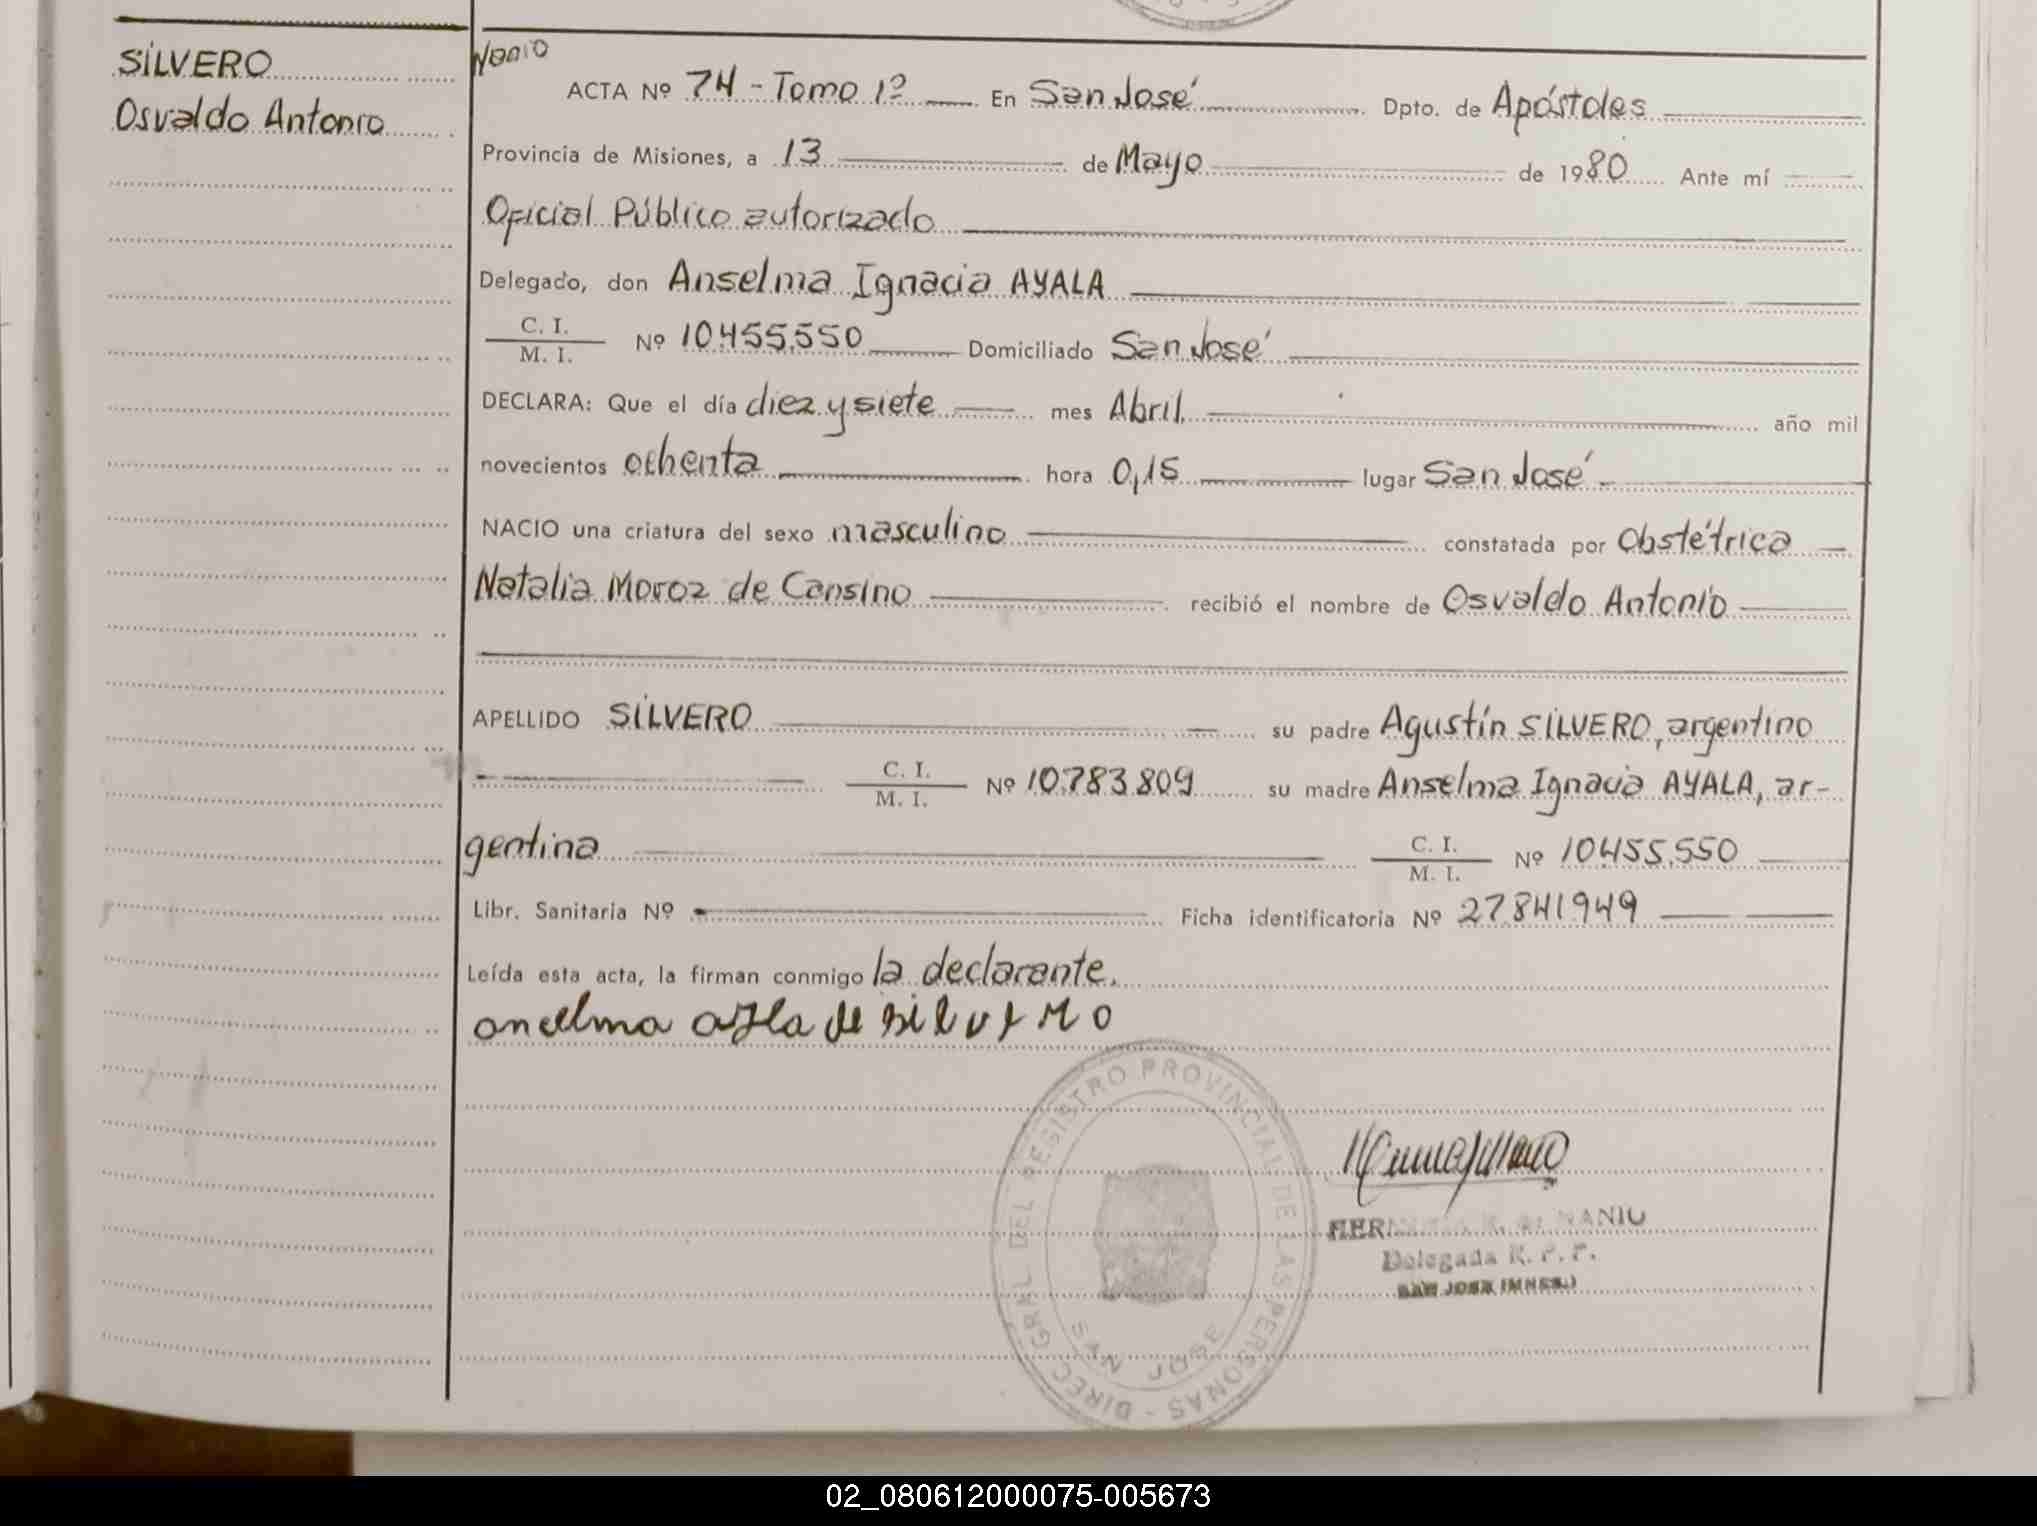 SILVERO
Osvaldo Antonio
ACTA Nº 74 - Tomo 1º En San José Dpto. de Apóstoles
Provincia de Misiones, a 13 de Mayo de 1980 Ante mí
Oficial Público autorizado
Delegado, don Anselma Ignacia AYALA
C. I.
M. I. Nº 10.455.550 Domiciliado San José
DECLARA: Que el día diez y siete mes Abril. año mil
novecientos ochenta hora 0,15 lugar San José
NACIO una criatura del sexo masculino constatada por Obstétrica
Natalia Moroz de Cansino recibió el nombre de Osvaldo Antonio
APELLIDO SILVERO su padre Agustín SILVERO, argentino
C. I.
M. I. Nº 10.783.809 su madre Anselma Ignacia AYALA, ar-
gentina C. I.
M. I. Nº 10.455.550
Libr. Sanitaria Nº Ficha identificatoria Nº 27.841.949
Leída esta acta, la firman conmigo la declarante.
de silvero
DIREC. GRAL. DEL REGISTRO PROVINCIAL DE LAS PERSONAS -
SAN JOSE
Delegada R. P. P.
SAN JOSE (MNES.)
02_080612000075-005673